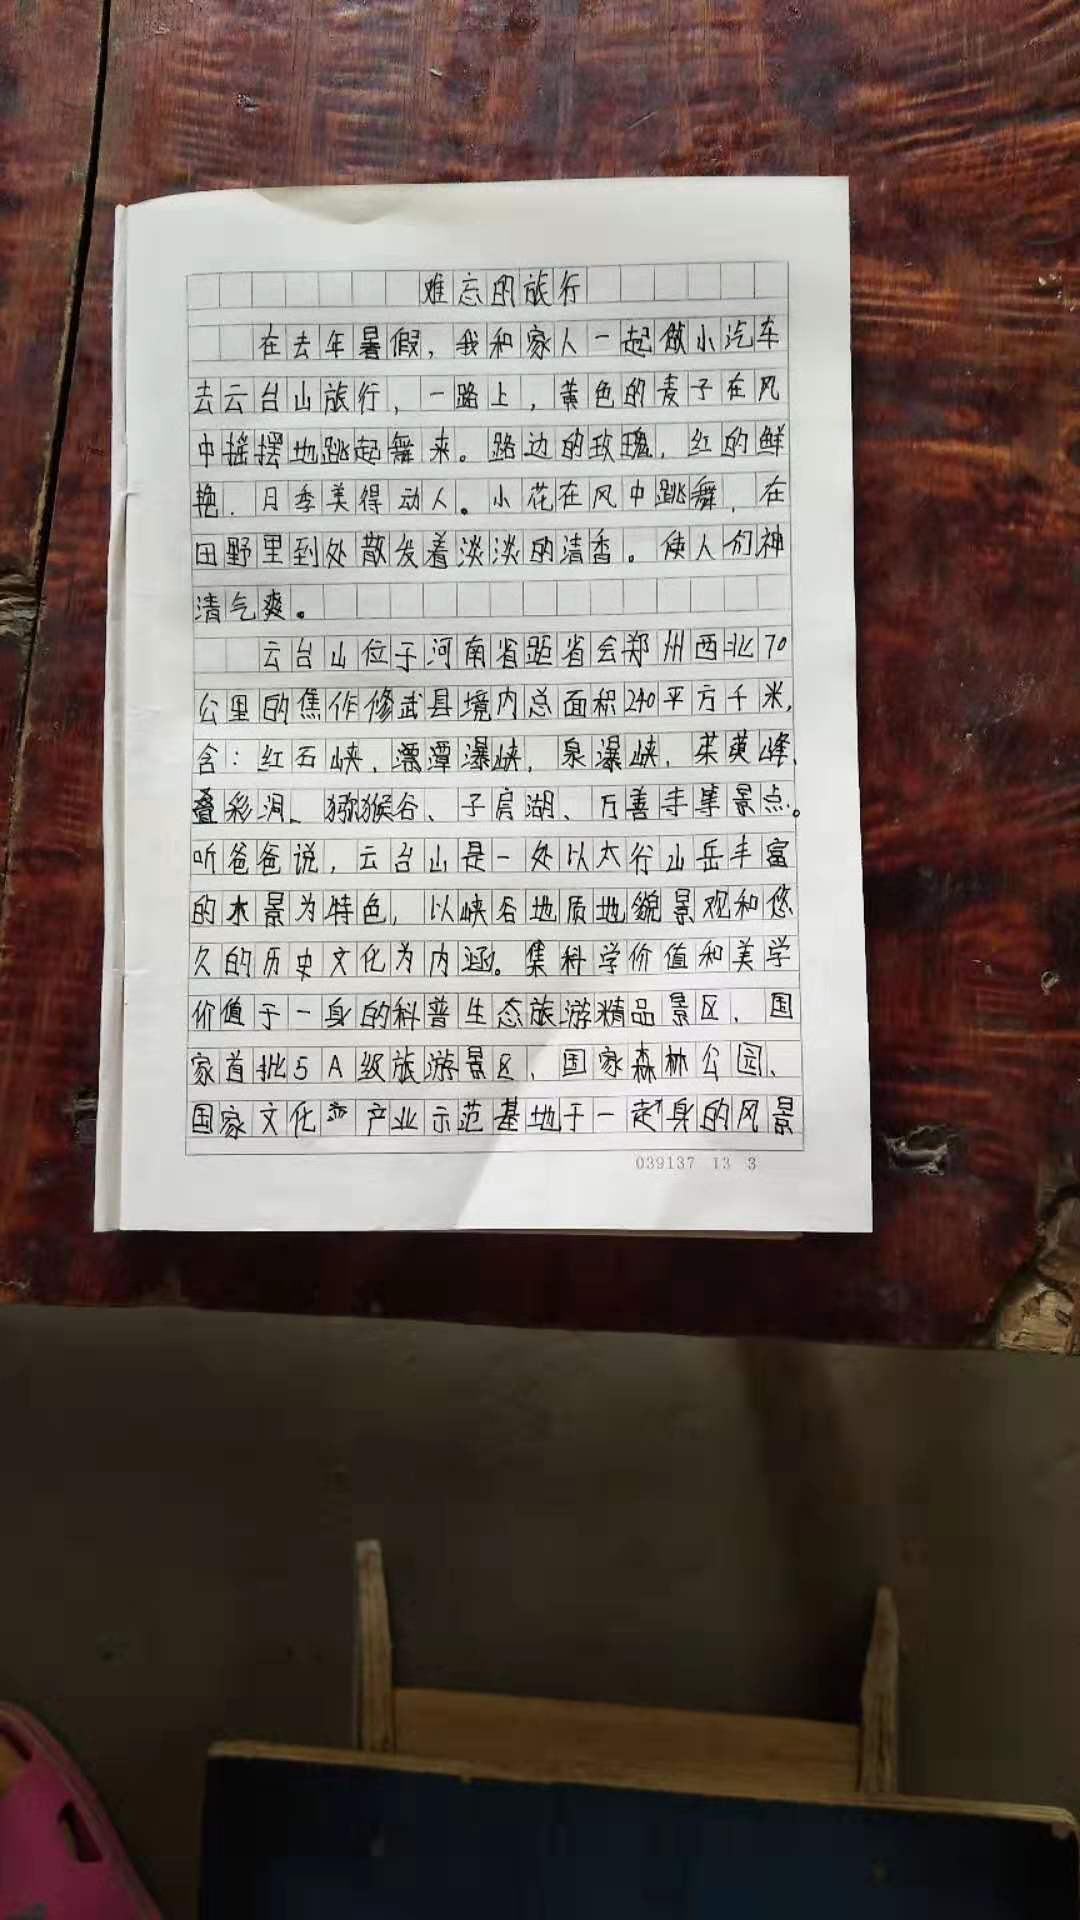 难忘的旅行
在去年暑假，我和家人一起做小汽车
去云台山旅行，一路上，黄色的麦子在风
中摇摆地跳起舞来。路边的玫瑰，红的鲜
艳，月季美得动人。小花在风中跳舞，在
田野里到处散发着淡淡的清香。使人们神
清气爽。
云台山位于河南省距省会郑州西北70
公里的焦作修武县境内总面积240平方千米，
含：红石峡、潭瀑峡，泉瀑峡，茱萸峰、
叠彩洞、猕猴谷、子房湖、万善寺等景点。
听爸爸说，云台山是一处以太行山岳丰富
的水景为特色，以峡谷地质地貌景观和悠
久的历史文化为内涵。集科学价值和美学
价值于一身的科普生态旅游精品景区、国
家首批5A级旅游景区、国家森林公园、
国家文化产业示范基地于一身的风景
039137 13 3